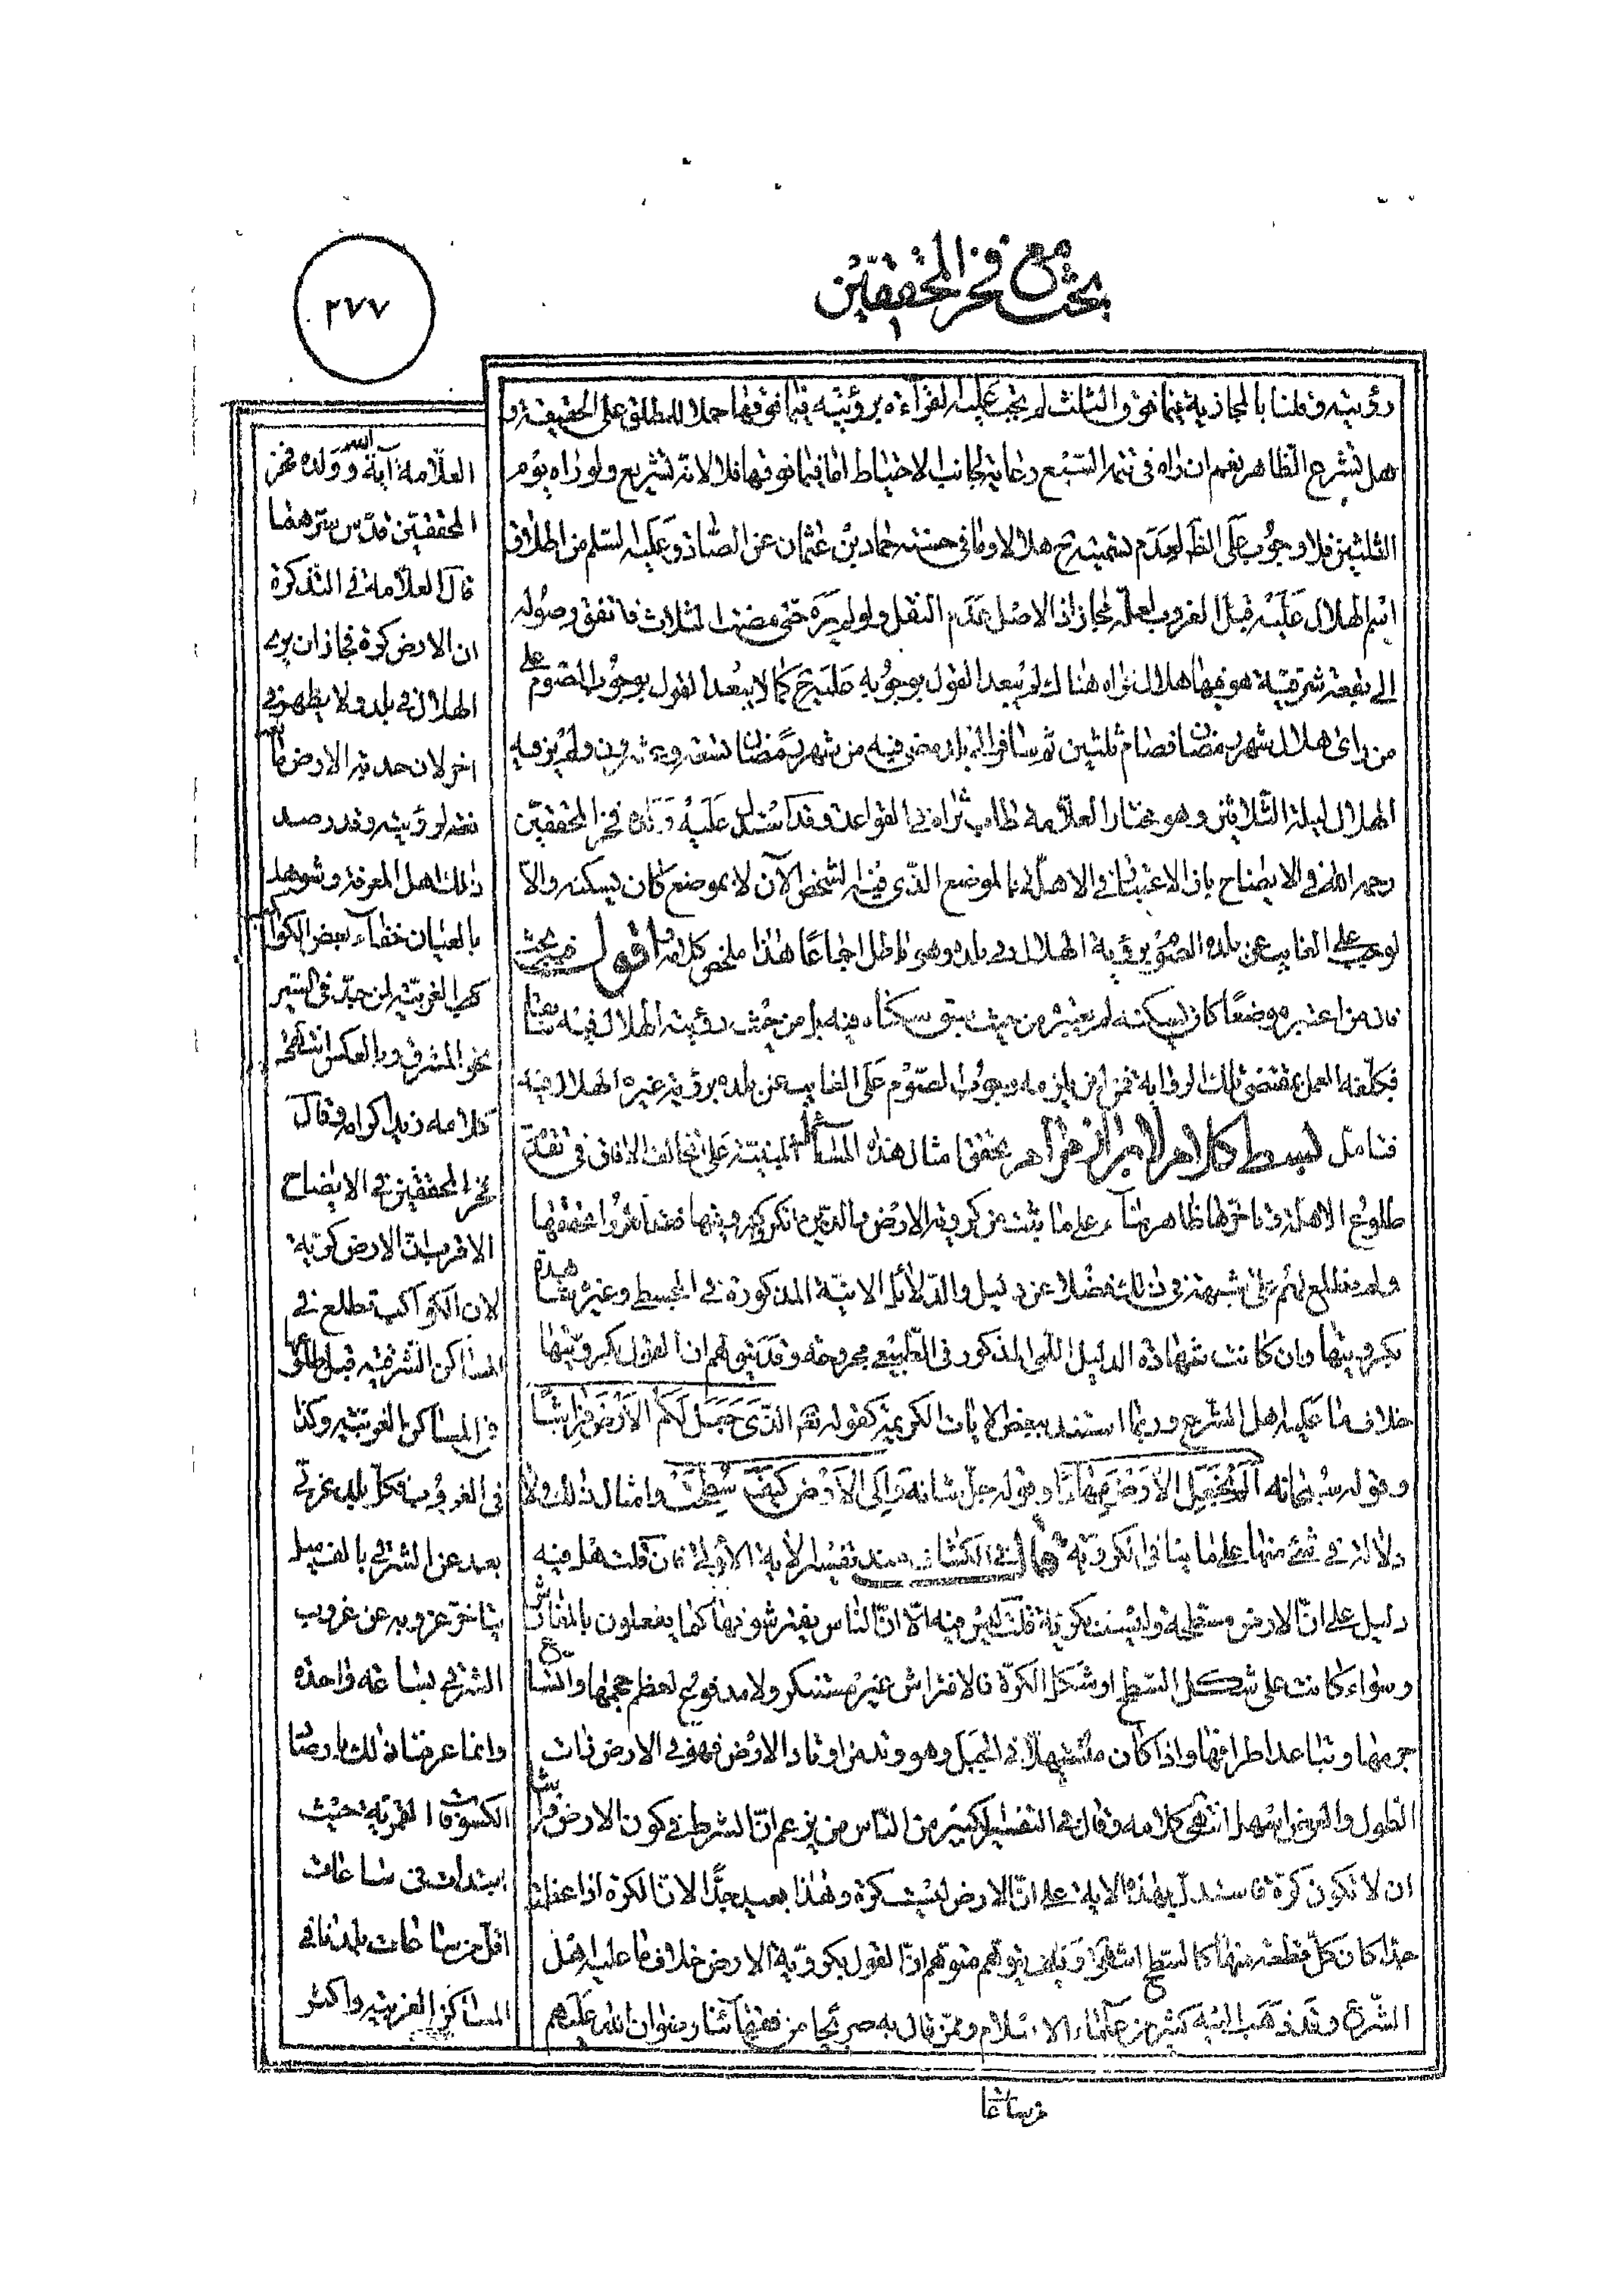 بحث مع فخر المحققين
٢٧٧
رؤيته وقلنا بالمجازية فيما فوق الثلث لم يجب عليه القراءة برؤيته فيما فوقها حملا للمطلق على الحقيقة و
هل تشرع الظاهر نعم ان راه في تتمة السبع رعاية لجانب الاحتياط اما فيما فوقها فلا لانه تشريع ولو راه يوم
الثلثين فلا وجوب على الظ لعدم تسميته ح هلالا وما في حسنة حماد بن عثمان عن الصادق عليه السلم من اطلاق
اسم الهلال عليه قبل الغروب لعله مجاز اذ الاصل عدم النقل ولو لم يره حتى مضت الثلاث فاتفق وصوله
الى بقعة شرقية هو فيها هلال فراه هناك لم يبعد القول بوجوبه عليه ح كما لا يبعد القول بوجوب الصوم على
من راى هلال شهر رمضان فصام ثلثين ثم سافر الى بلد مضى فيه من شهر رمضان تسعة وعشرون ولم ير فيه
الهلال ليلة الثلاثين وهو مختار العلامة طاب ثراه في القواعد وقد استدل عليه ولده فخر المحققين
رحمه الله في الايضاح بان الاعتبار في الاهلة بالموضع الذي فيه الشخص الآن لا بموضع كان يسكنه والا
لوجب على الغايب عن بلده الصوم برؤية الهلال في بلده وهو باطل اجماعا هذا ملخص كلامه اقول فيه بحث
فان من اعتبر موضعا كان يسكنه لم يعتبره من حيث سبق سكناه فيه بل من حيث رؤية الهلال فيه سابقا
فكلفه العمل بمقتضى تلك الرؤية فمن اين يلزمه وجوب الصوم على الغايب عن بلده برؤية غيره الهلال فيه
فتامل لبسط كلام لابراز مرام تحقق امثال هذه المسائل المبنية على تخالف الافاق في تقدم
طلوع الاهلة وتاخرها ظاهر بناء على ما ثبت من كروية الارض والذين انكروا كرويتها فقد انكروا تحققها
ولم نطلع لهم على شبهة في ذلك فضلا عن دليل والدلائل الانية المذكورة في المجسطي وغيره شاهدة
بكرويتها وان كانت شهادة الدليل اللمي المذكور في الطبيعي مجروحة وقد يتوهم ان القول بكرويتها
خلاف ما عليه اهل الشرع وربما استند ببعض الايات الكريمة كقوله تعم الذي جعل لكم الارض فراشا
وقوله سبحانه الم نجعل الارض مهادا وقوله جل شانه والى الارض كيف سطحت وامثال ذلك ولا
دلالة في شئ منها على ما ينافي الكروية قال في الكشاف عند تفسير الاية الاولى فان قلت هل فيه
دليل على ان الارض مسطحة وليست بكروية قلت ليس فيه الا ان الناس يفترشونها كما يفعلون بالمفارش
وسواء كانت على شكل السطح او شكل الكرة فالافتراش غير مستنكر ولا مدفوع لعظم حجمها واتساع
جرمها وتباعد اطرافها واذا كان متسهلا في الجبل وهو وتد من اوتاد الارض فهو في الارض ذات
الطول والعرض اسهل انتهى كلامه وقال في التفسير الكبير من الناس من يزعم ان الشرط في كون الارض فراشا
ان لا تكون كرة فاستدل بهذه الاية على ان الارض ليست كرة وهذا بعيد جدا لان الكرة اذا عظمت
جدا كان كل قطعة منها كالسطح انتهى وكيف يتوهم متوهم ان القول بكروية الارض خلاف ما عليه اهل
الشرع وقد ذهب اليه كثير من علماء الاسلام وممن قال به صريحا من فقهائنا رضوان الله عليهم
العلامة آية الله وولده فخر
المحققين قدس سرهما
قال العلامة في التذكرة
ان الارض كرة فجاز ان يرى
الهلال في بلد ولا يظهر في
اخر لان حدبة الارض مانعة
لرؤيته وقد رصد
ذلك اهل المعرفة وشوهد
بالعيان خفاء بعض الكواكب
الغربية لمن جد في السير
نحو المشرق وبالعكس انتهى
كلامه زيد اكرامه وقال
فخر المحققين في الايضاح
الاقرب ان الارض كروية
لان الكواكب تطلع في
المساكن الشرقية قبل طلوعها
في المساكن الغربية وكذا
في الغروب فكل بلد غربي
بعد عن الشرقي بالف ميل
يتاخر غروبه عن غروب
الشرقي بساعة واحدة
وانما عرفنا ذلك بارصاد
الكسوفات القمرية حيث
ابتدات في ساعات
اقل من ساعات بلدنا في
المساكن الغربية واكثر
من ساعات